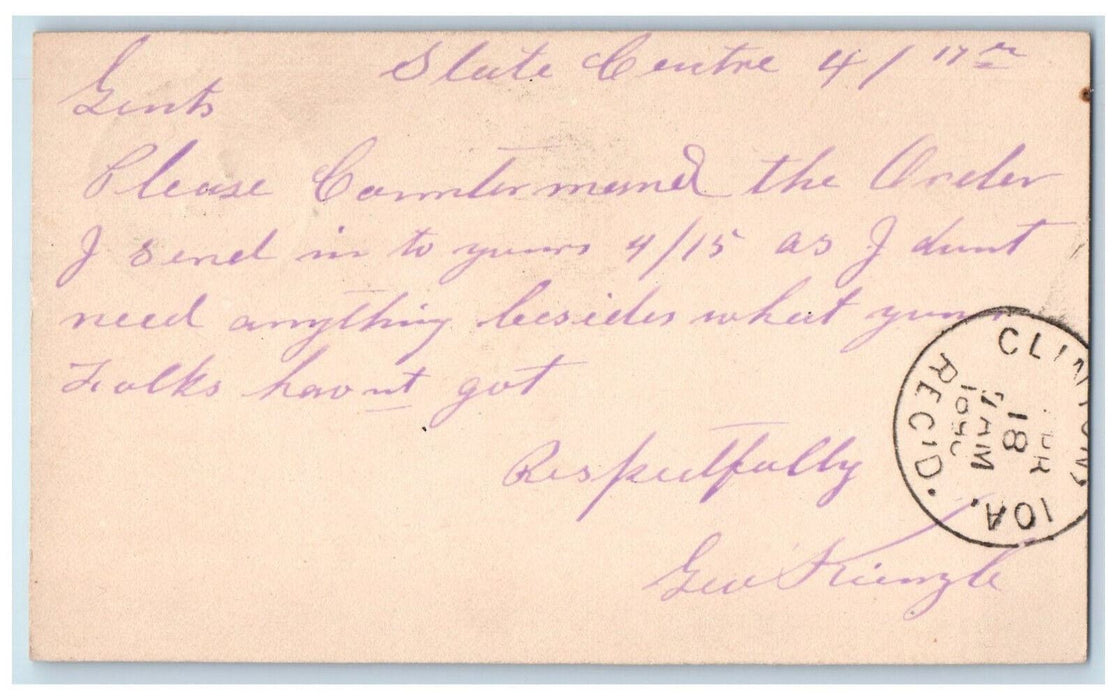 State Centre 4/17th
Gents
Please Countermand the Order
I send in to yours 4/15 as I dont
need anything besides what your
Folks havnt got
Respectfully
Geo Kienzle
CLINTON, IOA.
APR
18
7 AM
REC'D.